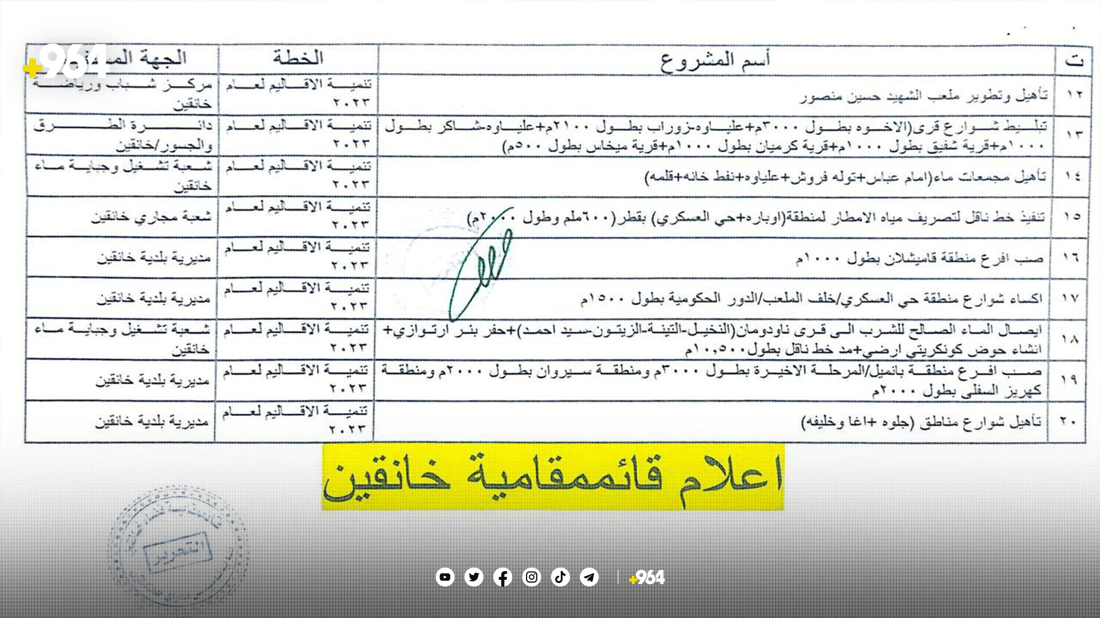 +964
ت أسم المشروع الخطة الجهة
١٢ تأهيل وتطوير ملعب الشهيد حسين منصور تنمية الاقاليم لعام ٢٠٢٣ مركز شباب ورياضة خانقين
١٣ تبليط شوارع قرى(الاخوه بطول ٣٠٠٠م+علياوه-زوراب بطول ٢١٠٠م+علياوه-شاكر بطول
١٠٠٠م+قرية شفيق بطول ١٠٠٠م+قرية كرميان بطول ١٠٠٠م+قرية ميخاس بطول ٥٠٠م) تنمية الاقاليم لعام ٢٠٢٣ دائرة الطرق والجسور/خانقين
١٤ تأهيل مجمعات ماء(امام عباس+توله فروش+علياوه+نفط خانه+قلمه) تنمية الاقاليم لعام ٢٠٢٣ شعبة تشغيل وجباية ماء خانقين
١٥ تنفيذ خط ناقل لتصريف مياه الامطار لمنطقة(اوباره+حي العسكري) بقطر(٦٠٠ملم وطول ٢٠٠٠م) تنمية الاقاليم لعام ٢٠٢٣ شعبة مجاري خانقين
١٦ صب افرع منطقة قاميشلان بطول ١٠٠٠م تنمية الاقاليم لعام ٢٠٢٣ مديرية بلدية خانقين
١٧ اكساء شوارع منطقة حي العسكري/خلف الملعب/الدور الحكومية بطول ١٥٠٠م تنمية الاقاليم لعام ٢٠٢٣ مديرية بلدية خانقين
١٨ ايصال الماء الصالح للشرب الى قرى ناودومان(النخيل-التينة-الزيتون-سيد احمد)+حفر بئر ارتوازي+
انشاء حوض كونكريتي ارضي+مد خط ناقل بطول١٠,٥٠٠م تنمية الاقاليم لعام ٢٠٢٣ شعبة تشغيل وجباية ماء خانقين
١٩ صب افرع منطقة بانميل/المرحلة الاخيرة بطول ٣٠٠٠م ومنطقة سيروان بطول ٢٠٠٠م ومنطقة
كهريز السفلى بطول ٢٠٠٠م تنمية الاقاليم لعام ٢٠٢٣ مديرية بلدية خانقين
٢٠ تأهيل شوارع مناطق (جلوه +اغا وخليفه) تنمية الاقاليم لعام ٢٠٢٣ مديرية بلدية خانقين
اعلام قائممقامية خانقين
التحرير
+964